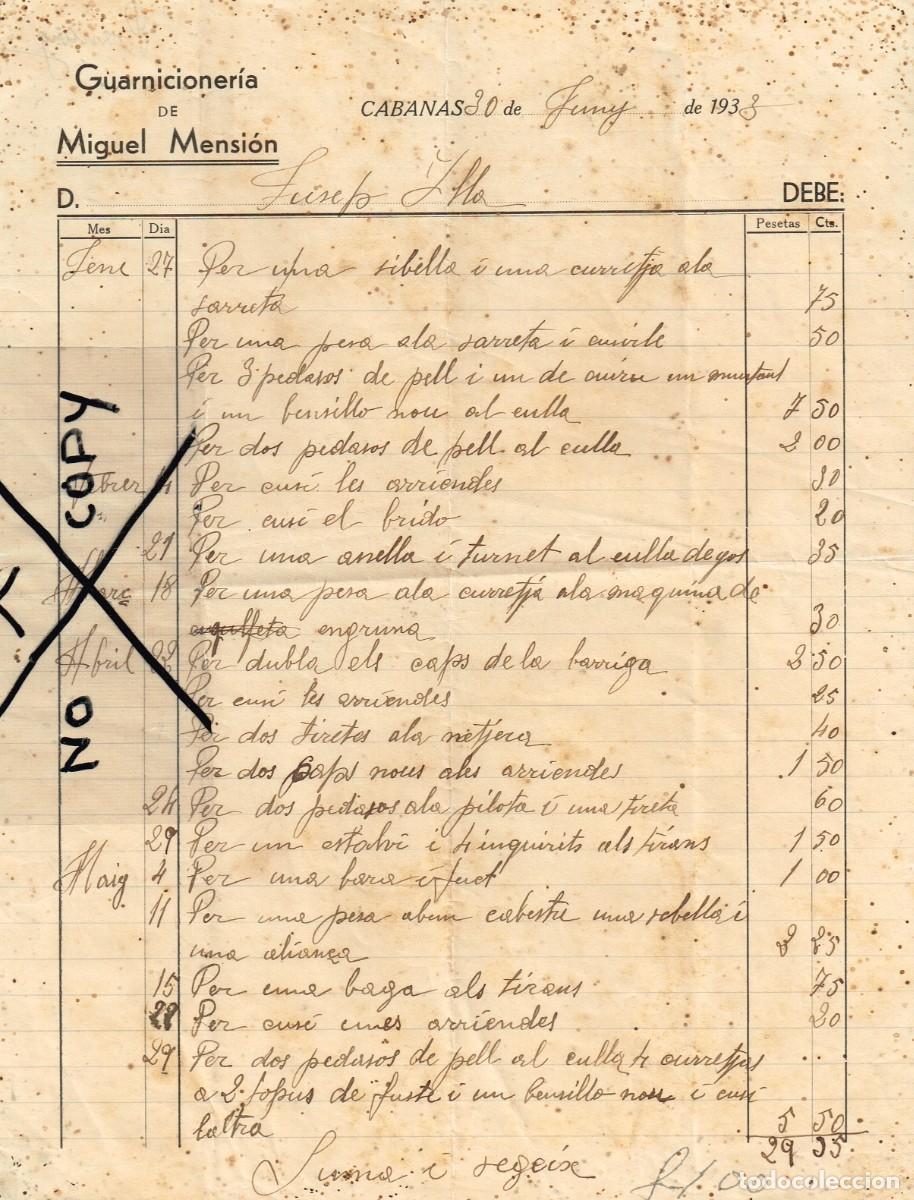 Guarnicionería
DE
Miguel Mensión
CABANAS 30 de Juny de 1933
D. Jusep Ylla DEBE:
Mes Dia Pesetas Cts.
Jene 27 Per una sibella i una curritja ala
sarreta 75
Per una pesa ala sarreta i cusirle 50
Per 3 pedasos de pell i un de cuiru un muntant
i un bensillo nou al culla 7 50
Per dos pedasos de pell al culla 2 00
Febrer 4 Per cusi les arriendes 30
Per cusi el brido 20
21 Per una anella i turnet al culla de gos 35
Març 18 Per una pesa ala curretja ala maquina de
engruna 30
Abril 22 Per dubla els caps de la barriga 2 50
Per cusi les arriendes 25
Per dos tiretes ala netjera 40
Per dos caps nous ales arriendes 1 50
24 Per dos pedasos ala pilota i una tireta 60
29 Per un estalvi i 4 inquirits als tirans 1 50
Maig 4 Per una bara i fuet 1 00
11 Per una pesa abun cabestre una sebella i
una aliança 3 25
15 Per una baga als tirans 75
28 Per cusi unes arriendes 20
29 Per dos pedasos de pell al culla 4 curretjas
a 2 fopus de fuste i un bensillo nou i cusi
laltra 5 50
29 35
Suma i segeix
NO COPY
todocoleccion